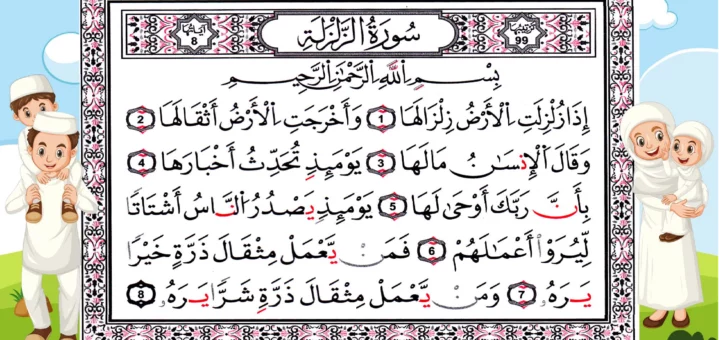 آياتها 8
سُورَةُ الزَّلْزَلَةِ
ترتيبها 99
بِسْمِ اِ۬للَّهِ اِ۬لرَّحْمَٰنِ اِ۬لرَّحِيمِ
إِذَا زُلْزِلَتِ اِ۬لْأَرْضُ زِلْزَالَهَا 1 وَأَخْرَجَتِ اِ۬لْأَرْضُ أَثْقَالَهَا 2
وَقَالَ اَ۬لْإِنسَٰنُ مَا لَهَا 3 يَوْمَئِذٍ تُحَدِّثُ أَخْبَارَهَا 4
بِأَنَّ رَبَّكَ أَوْحَىٰ لَهَا 5 يَوْمَئِذٍ يَصْدُرُ اُ۬لنَّاسُ أَشْتَاتًا
لِّيُرَوْا۟ أَعْمَٰلَهُمْ 6 فَمَن يَّعْمَلْ مِثْقَالَ ذَرَّةٍ خَيْرًا
يَرَهُۥ 7 وَمَن يَّعْمَلْ مِثْقَالَ ذَرَّةٍ شَرًّا يَرَهُۥ 8